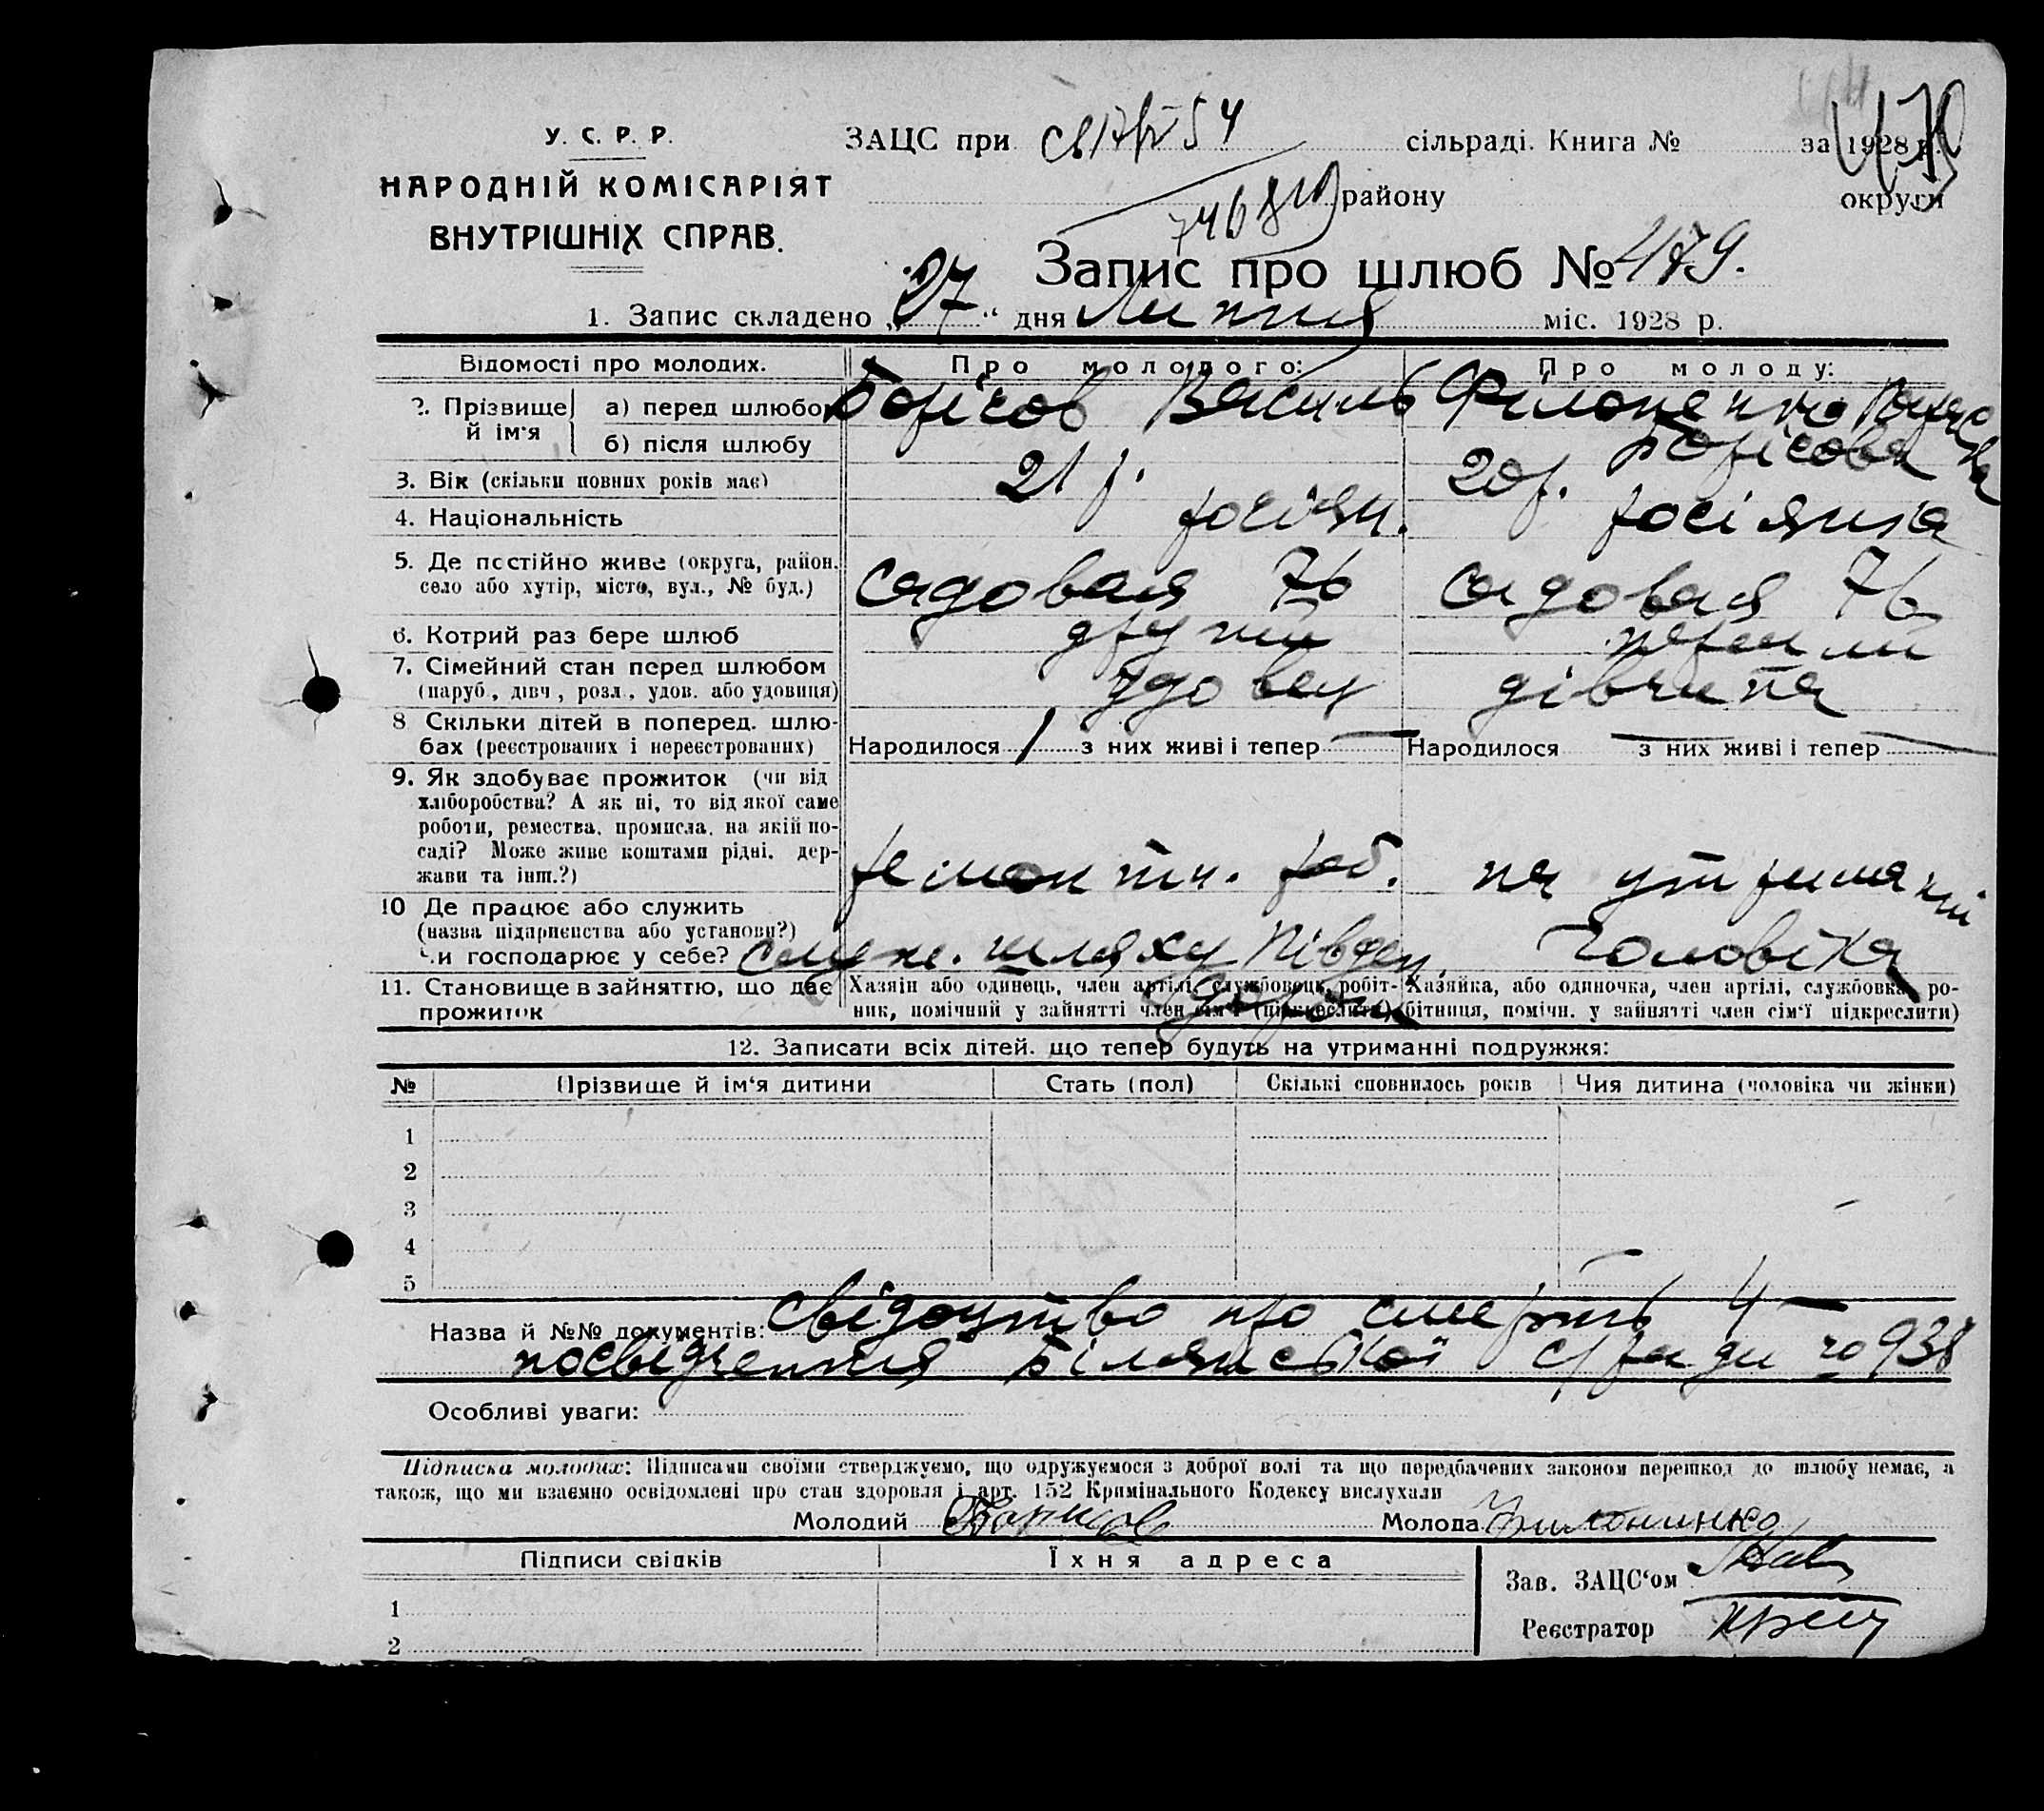 У. С. Р. Р.
НАРОДНІЙ КОМІСАРІЯТ
ВНУТРІШНІХ СПРАВ.
ЗАЦС при сільраді. Книга № за 1928 р.
району округи
Запис про шлюб № 479.
1. Запис складено „27“ дня Липня міс. 1928 р.
Відомості про молодих. Про молодого: Про молоду:
2. Прізвище й ім'я а) перед шлюбом Борісов Василь Філоненко
б) після шлюбу Борісова
3. Вік (скільки повних років має) 21 р. 20 р.
4. Національність росіян. росіянка
5. Де постійно живе (округа, район,
село або хутір, місто, вул., № буд.) Садовая 76 Садовая 76
6. Котрий раз бере шлюб другий перший
7. Сімейний стан перед шлюбом
(паруб., дівч., розл., удов. або удовиця) удовец дівчина
8 Скільки дітей в поперед. шлю-
бах (реєстрованих і нереєстрованих) Народилося 1 з них живі і тепер — Народилося — з них живі і тепер —
9. Як здобуває прожиток (чи від
хліборобства? А як ні, то від якої саме
роботи, ремества, промисла, на якій по-
саді? Може живе коштами рідні, дер-
жави та інш.?) ремонтн. роб. на утриманні
10 Де працює або служить
(назва підприємства або установи?)
чи господарює у себе? служ. шляху Півден. чоловіка
11. Становище в зайняттю, що дає
прожиток
Хазяїн або одинець, член артілі, службовець, робіт-
ник, помічний у зайнятті член сім'ї (підкреслити)
Хазяйка, або одиночка, член артілі, службовка, ро-
бітниця, помічн. у зайнятті член сім'ї підкреслити)
12. Записати всіх дітей, що тепер будуть на утриманні подружжя:
№ Прізвище й ім'я дитини Стать (пол) Скількі сповнилось років Чия дитина (чоловіка чи жінки)
1
2
3
4
5
Назва й №№ документів: свідоцтво про смерть 4 —
посвідчення Білянської с/ради № 938
Особливі уваги:
Підписка молодих: Підписами своїми стверджуємо, що одружуємося з доброї волі та що передбачених законом перешкод до шлюбу немає, а
також, що ми взаємно освідомлені про стан здоровля і арт. 152 Кримінального Кодексу вислухали
Молодий Борисов Молода Филонинко
Підписи свідків Їхня адреса
Зав. ЗАЦС'ом
Реєстратор
1
2